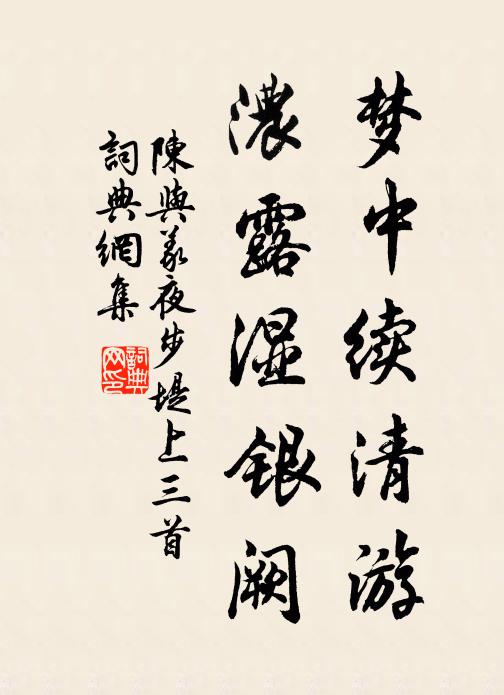 梦中续清游
濃露湿银阙
陳與義夜步堤上三首
詞典網集
詞典網印